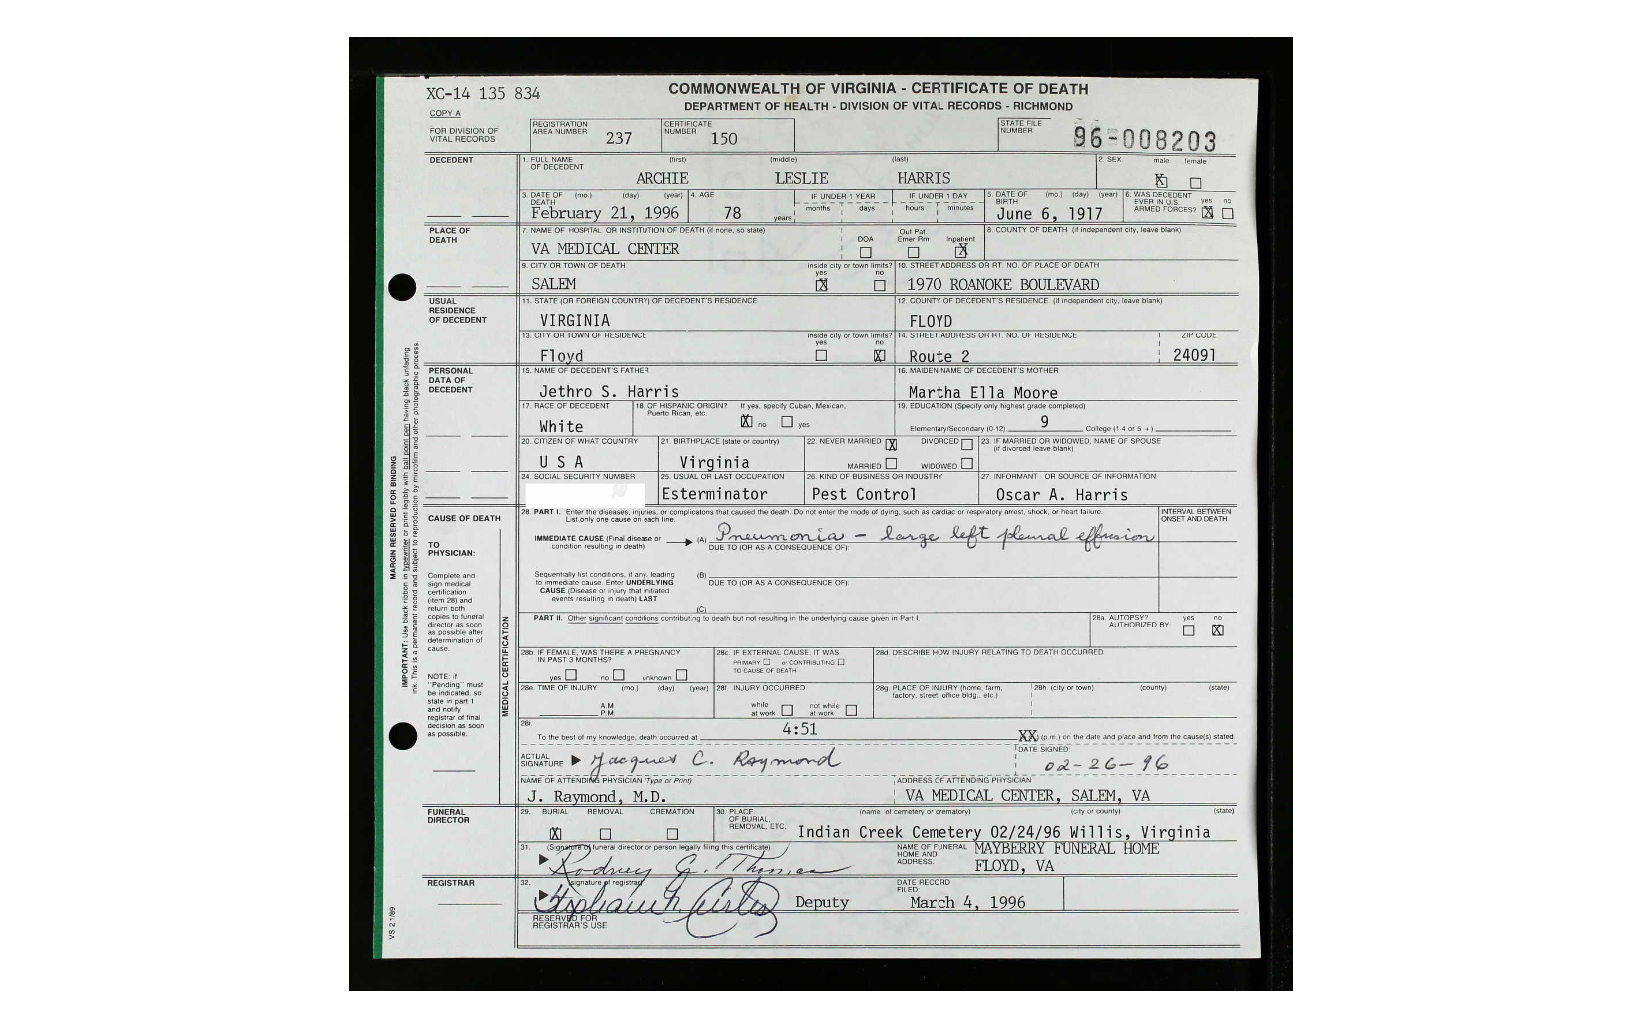 XC-14 135 834
COMMONWEALTH OF VIRGINIA - CERTIFICATE OF DEATH
DEPARTMENT OF HEALTH - DIVISION OF VITAL RECORDS - RICHMOND
COPY A
FOR DIVISION OF VITAL RECORDS
REGISTRATION AREA NUMBER 237
CERTIFICATE NUMBER 150
STATE FILE NUMBER 96-008203
DECEDENT
1. FULL NAME OF DECEDENT (first) (middle) (last)
ARCHIE LESLIE HARRIS
2. SEX male female
X
3. DATE OF DEATH (mo.) (day) (year)
February 21, 1996
4. AGE
78 years
IF UNDER 1 YEAR months days
IF UNDER 1 DAY hours minutes
5. DATE OF BIRTH (mo.) (day) (year)
June 6, 1917
6. WAS DECEDENT EVER IN U.S. ARMED FORCES? yes no
X
PLACE OF DEATH
7. NAME OF HOSPITAL OR INSTITUTION OF DEATH (if none, so state)
VA MEDICAL CENTER
DOA Out Pat. Emer Rm Inpatient
X
8. COUNTY OF DEATH (if independent city, leave blank)
9. CITY OR TOWN OF DEATH inside city or town limits? yes no
SALEM X
10. STREET ADDRESS OR RT. NO. OF PLACE OF DEATH
1970 ROANOKE BOULEVARD
USUAL RESIDENCE OF DECEDENT
11. STATE (OR FOREIGN COUNTRY) OF DECEDENT'S RESIDENCE
VIRGINIA
12. COUNTY OF DECEDENT'S RESIDENCE (if independent city, leave blank)
FLOYD
13. CITY OR TOWN OF RESIDENCE inside city or town limits? yes no
Floyd X
14. STREET ADDRESS OR RT. NO. OF RESIDENCE ZIP CODE
Route 2 24091
PERSONAL DATA OF DECEDENT
15. NAME OF DECEDENT'S FATHER
Jethro S. Harris
16. MAIDEN NAME OF DECEDENT'S MOTHER
Martha Ella Moore
17. RACE OF DECEDENT
White
18. OF HISPANIC ORIGIN? If yes, specify Cuban, Mexican, Puerto Rican, etc.
X no yes
19. EDUCATION (Specify only highest grade completed)
Elementary/Secondary (0-12) 9 College (1-4 or 5 +)
20. CITIZEN OF WHAT COUNTRY
U S A
21. BIRTHPLACE (state or country)
Virginia
22. NEVER MARRIED X DIVORCED
MARRIED WIDOWED
23. IF MARRIED OR WIDOWED, NAME OF SPOUSE (if divorced leave blank)
24. SOCIAL SECURITY NUMBER
25. USUAL OR LAST OCCUPATION
Esterminator
26. KIND OF BUSINESS OR INDUSTRY
Pest Control
27. INFORMANT - OR SOURCE OF INFORMATION
Oscar A. Harris
CAUSE OF DEATH
28. PART I. Enter the diseases, injuries, or complicatons that caused the death. Do not enter the mode of dying, such as cardiac or respiratory arrest, shock, or heart failure.
List only one cause on each line.
INTERVAL BETWEEN ONSET AND DEATH
IMMEDIATE CAUSE (Final disease or condition resulting in death) (A) Pneumonia - large left pleural effusion
DUE TO (OR AS A CONSEQUENCE OF):
Sequentially list conditions, if any, leading to immediate cause. Enter UNDERLYING CAUSE (Disease or injury that initiated events resulting in death) LAST
(B)
DUE TO (OR AS A CONSEQUENCE OF):
(C)
TO PHYSICIAN:
Complete and
sign medical
certification
(item 28) and
return both
copies to funeral
director as soon
as possible after
determination of
cause.
NOTE: if
"Pending" must
be indicated, so
state in part 1
and notify
registrar of final
decision as soon
as possible.
MEDICAL CERTIFICATION
PART II. Other significant conditions contributing to death but not resulting in the underlying cause given in Part I.
28a. AUTOPSY? AUTHORIZED BY: yes no
X
28b. IF FEMALE, WAS THERE A PREGNANCY IN PAST 3 MONTHS?
yes no unknown
28c. IF EXTERNAL CAUSE, IT WAS
PRIMARY or CONTRIBUTING
TO CAUSE OF DEATH
28d. DESCRIBE HOW INJURY RELATING TO DEATH OCCURRED
28e. TIME OF INJURY (mo.) (day) (year)
A.M
P.M
28f. INJURY OCCURRED
while at work not while at work
28g. PLACE OF INJURY (home, farm, factory, street office bldg., etc.)
28h. (city or town) (county) (state)
28i.
To the best of my knowledge, death occurred at 4:51 XX (p.m.) on the date and place and from the cause(s) stated.
ACTUAL SIGNATURE Jacques C. Raymond
DATE SIGNED:
02-26-96
NAME OF ATTENDING PHYSICIAN (Type or Print)
J. Raymond, M.D.
ADDRESS OF ATTENDING PHYSICIAN
VA MEDICAL CENTER, SALEM, VA
FUNERAL DIRECTOR
29. BURIAL REMOVAL CREMATION
X
30. PLACE OF BURIAL, REMOVAL, ETC. (name of cemetery or crematory) (city or county) (state)
Indian Creek Cemetery 02/24/96 Willis, Virginia
31. (Signature of funeral director or person legally filing this certificate)
Rodney G. Thomas
NAME OF FUNERAL HOME AND ADDRESS:
MAYBERRY FUNERAL HOME
FLOYD, VA
REGISTRAR
32. (signature of registrar)
Deputy
DATE RECORD FILED:
March 4, 1996
RESERVED FOR REGISTRAR'S USE
MARGIN RESERVED FOR BINDING
IMPORTANT: Use black ribbon in typewriter or print legibly with ball point pen having black unfading
ink. This is a permanent record and subject to reproduction by microfilm and other photographic process.
VS 2 1/89